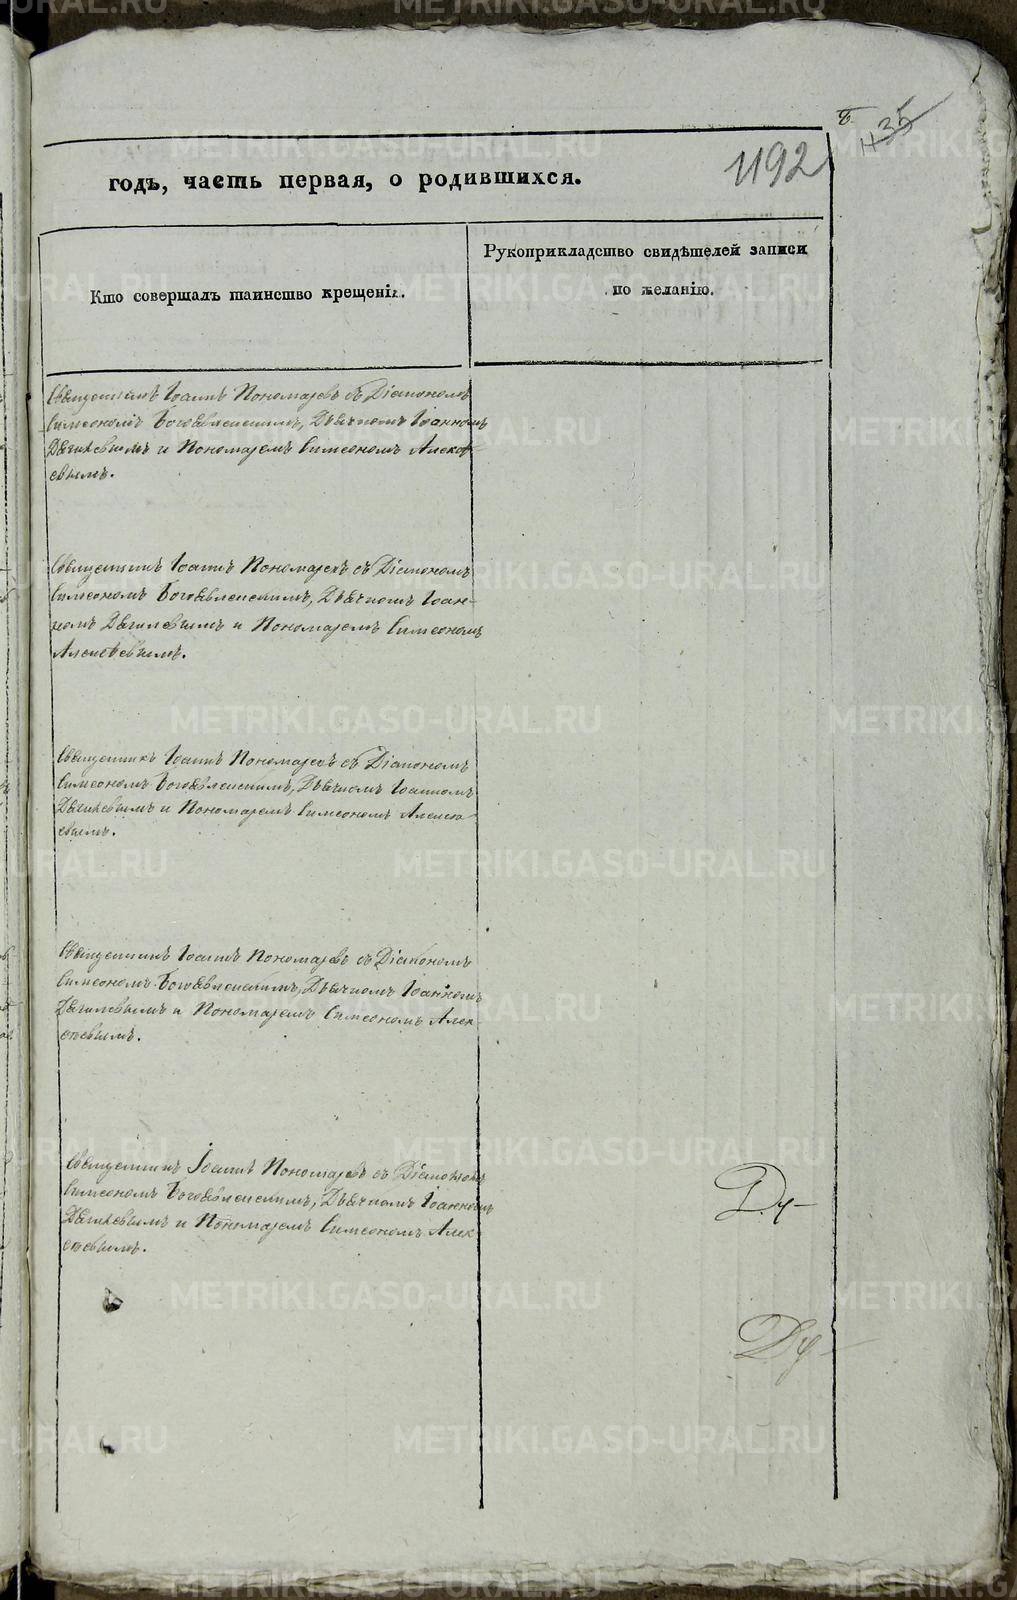 8
435
1192
годъ, часть первая, о родившихся.
Кто совершалъ таинство крещенія.
Рукоприкладство свидѣтелей записи
по желанію.
Священникъ Іоаннъ Пономаревъ съ Діакономъ
Симеономъ Богоявленскимъ, Дьячкомъ Іоанномъ
Дягилевымъ и Пономаремъ Симеономъ Алексѣ-
евымъ.
Священникъ Іоаннъ Пономаревъ съ Діакономъ
Симеономъ Богоявленскимъ, Дьячкомъ Іоан-
номъ Дягилевымъ и Пономаремъ Симеономъ
Алексѣевымъ.
Священникъ Іоаннъ Пономаревъ съ Діакономъ
Симеономъ Богоявленскимъ, Дьячкомъ Іоанномъ
Дягилевымъ и Пономаремъ Симеономъ Алексѣ-
евымъ.
Священникъ Іоаннъ Пономаревъ съ Діакономъ
Симеономъ Богоявленскимъ, Дьячкомъ Іоанномъ
Дягилевымъ и Пономаремъ Симеономъ Алек-
сѣевымъ.
Священникъ Іоаннъ Пономаревъ съ Діакономъ
Симеономъ Богоявленскимъ, Дьячкомъ Іоанномъ
Дягилевымъ и Пономаремъ Симеономъ Алек-
сѣевымъ.
METRIKI.GASO-URAL.RU